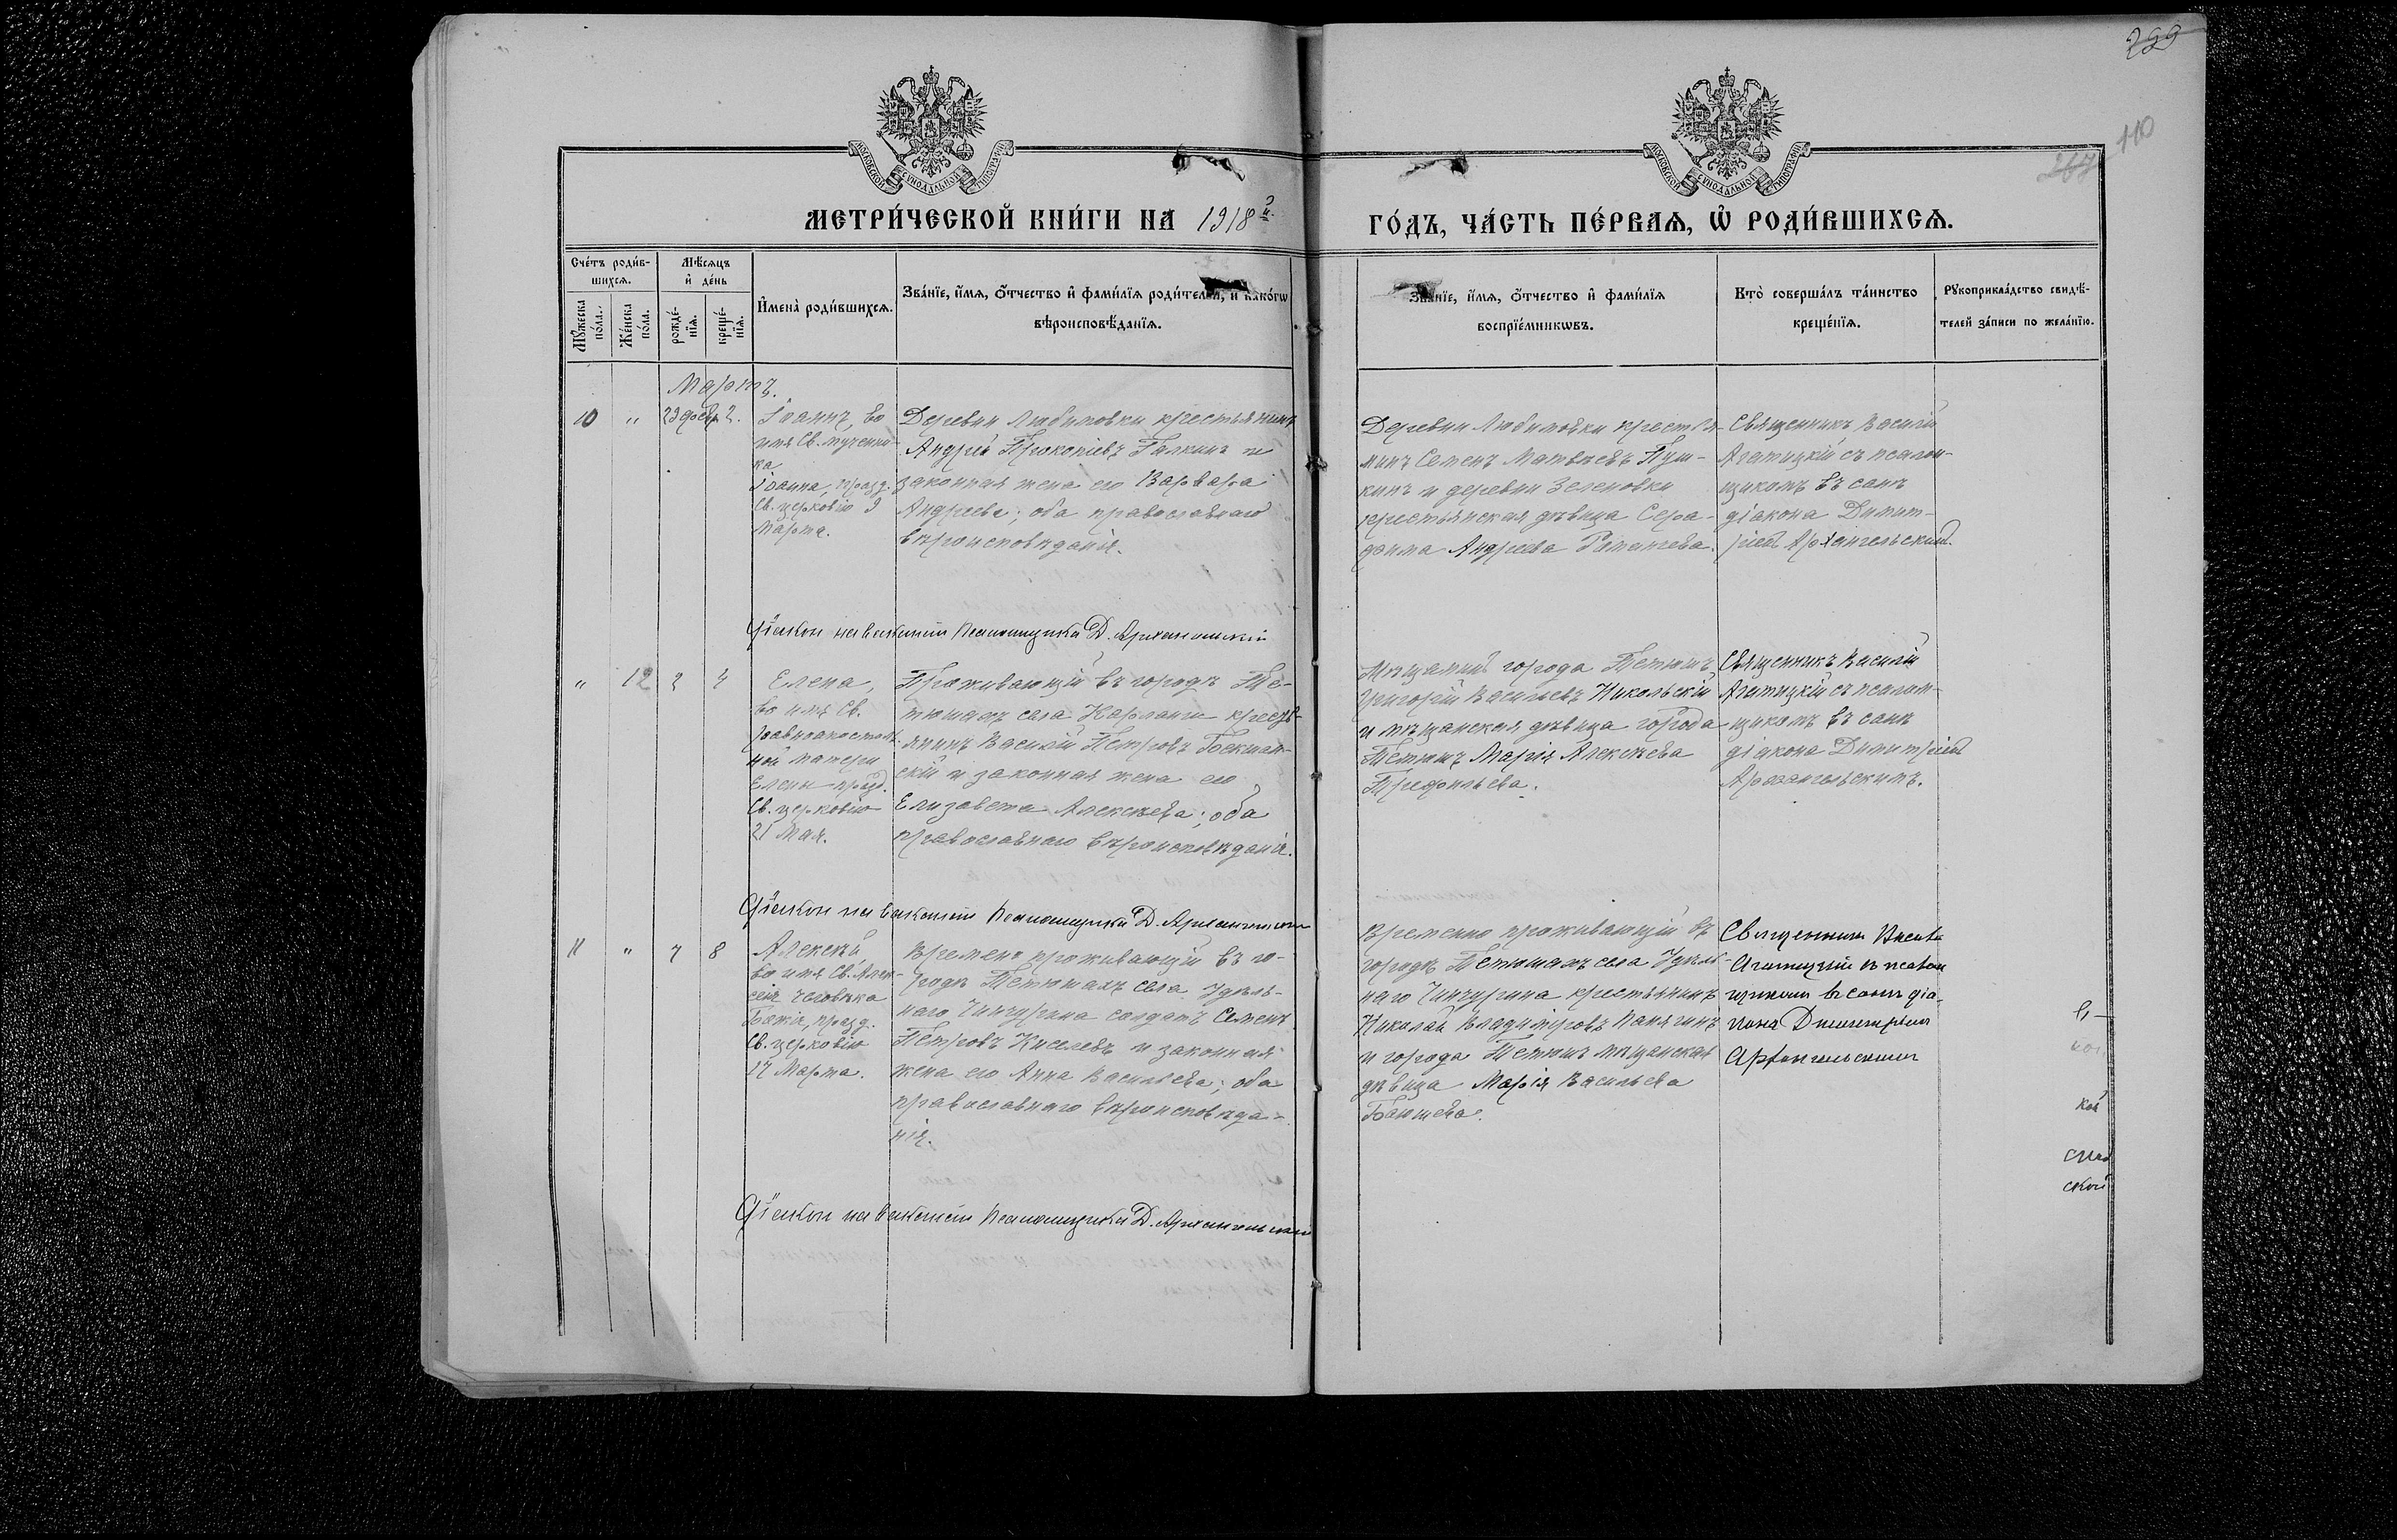 299
110
267
МОСКОВСКОЙ СѴНОДАЛЬНОЙ ТИПОГРАФІИ
МОСКОВСКОЙ СѴНОДАЛЬНОЙ ТИПОГРАФІИ
МЕТРИ́ЧЕСКОЙ КНИ́ГИ НА 1918й.
ГО́ДЪ, ЧА́СТЬ ПЕ́РВАѦ, Ѡ РОДИ́ВШИХСѦ.
Сче́тъ роди́в-
шихсѧ.
Мꙋ́жеска
по́ла.
Же́нска
по́ла.
Мѣ́сѧцъ
и҆ де́нь
рожде́-
нїѧ.
креще́-
нїѧ.
И҆мена̀ роди́вшихсѧ.
Зва́нїе, и҆́мѧ, ѻ҆́тчество и҆ фами́лїѧ роди́телей, и҆ како́гѡ
вѣроисповѣ́данїѧ.
Зва́нїе, и҆́мѧ, ѻ҆́тчество и҆ фами́лїѧ
воспрїе́мникѡвъ.
Кто̀ соверша́лъ та́инство
креще́нїѧ.
Рꙋкоприкла́дство свидѣ́-
телей за́писи по жела́нїю.
Мартъ.
10
"
23 февр.
2.
Іоаннъ, во
имя Св. мучени-
ка
Іоанна, празд.
Св. церковію 9
Марта.
Деревни Любимовки крестьянинъ
Андрей Прокопіевъ Галкинъ и
законная жена его Варвара
Андреева; оба православнаго
вѣроисповѣданія.
Деревни Любимовки крестья-
нинъ Семенъ Матвѣевъ Пуш-
кинъ и деревни Зеленовки
крестьянская дѣвица Сера-
фима Андреева
Священникъ Василій
Агатицкій съ псалом-
щикомъ въ санѣ
діакона Димит-
ріемъ Архангельскимъ.
Діакон на вакансіи Псаломщика Д. Архангельскій
"
12
2
4
Елена,
во имя Св.
равноапостоль-
ной матери
Елены празд.
Св. церковію
21 Мая.
Проживающій въ городѣ Те-
тюшахъ села Карланги кресть-
янинъ Василій Петровъ Бекшан-
скій и законная жена его
Елизавета Алексѣева; оба
православнаго вѣроисповѣданія.
Мѣщанинъ города Тетюшъ
Григорій Васильевъ Никольскій
и мѣщанская дѣвица города
Тетюшъ Марія Алексѣева
Трефильева.
Священникъ Василій
Агатицкій съ псалом-
щикомъ въ санѣ
діакона Димитріемъ
Архангельскимъ.
Діакон на вакансіи Псаломщика Д. Архангельскій
11
"
7
8
Алексѣй,
во имя Св. Алек-
сея человѣка
Божія, празд.
Св. церковію
17 Марта.
Временно проживающій въ го-
родѣ Тетюшахъ села Удѣль-
наго Чинчурина солдатъ Семенъ
Петровъ Киселевъ и законная
жена его Анна Васильева; оба
православнаго вѣроисповѣда-
нія.
Временно проживающій въ
городѣ Тетюшахъ села Удѣль-
наго Чинчурина крестьянинъ
Николай Владиміровъ Панягинъ
и города Тетюшъ мѣщанская
дѣвица Марія Васильева
Священникъ Василій
Агатицкій съ псалом
щикомъ въ санѣ діа-
кона Димитріемъ
Архангельскимъ
Діакон на вакансіи Псаломщика Д. Архангельскій
кой
ской